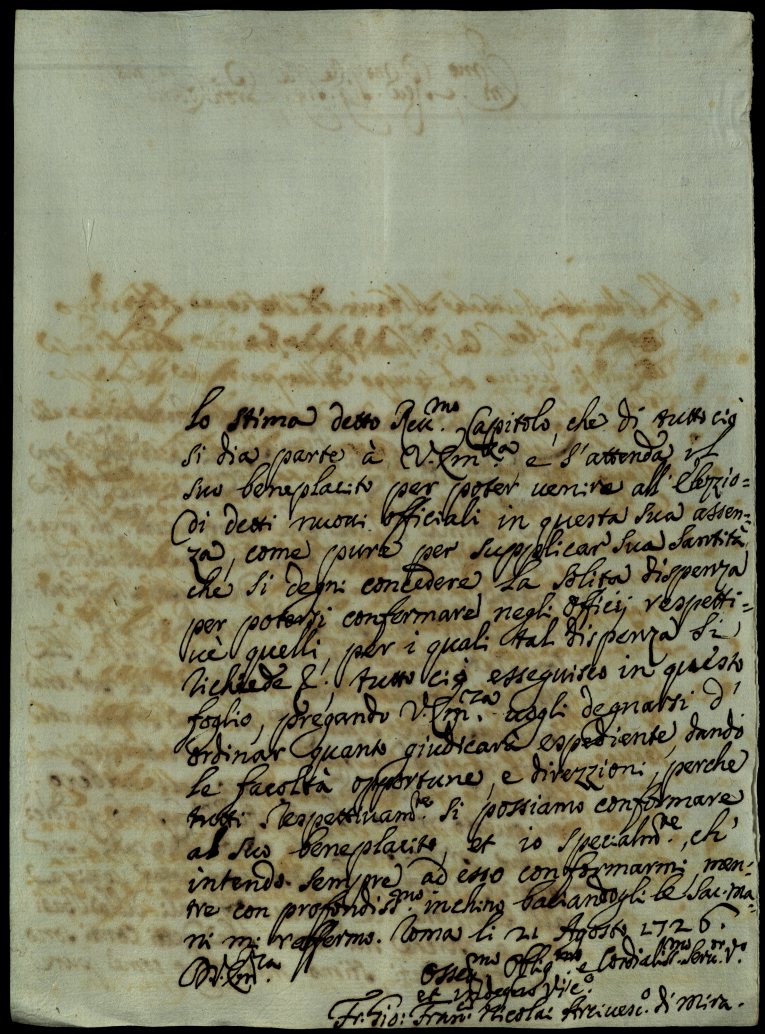 Lo stima detto Reu.mo Capitolo, che di tutto ciò
si dia parte à V. Em.za e s'attenda il
suo beneplacito per poter uenire all' Elezzio=
di detti nuoui officiali in questa sua assen=
za, come pure per supplicar sua Santità
che si degni concedere la solita dispenza
per potersi confermare negli officij respetti=
uè quelli, per i quali tal dispenza si
richiede &. tutto ciò esseguisco in questo
foglio, pregando V. Em.za uogli degnarsi d'
ordinar quanto giudicarà espediente, dando
le facoltà opportune, e direzzioni, perche
tutti respettiuam.te si possiamo conformare
al suo beneplacito, et io specialm.te, ch'
intendo sempre ad esso conformarmi, men=
tre con profondiss.mo inchino baciandogli le Sac. ma=
ni mi raffermo. Roma li 21 Agosto 1726.
D. V. Em.za
Osseq.mo Oblig.mo e Cordialiss.mo Seru.or V.o
et Vic.o
Fr. Gio: Fran.o Nicolai Arciuesc.o di Mira.